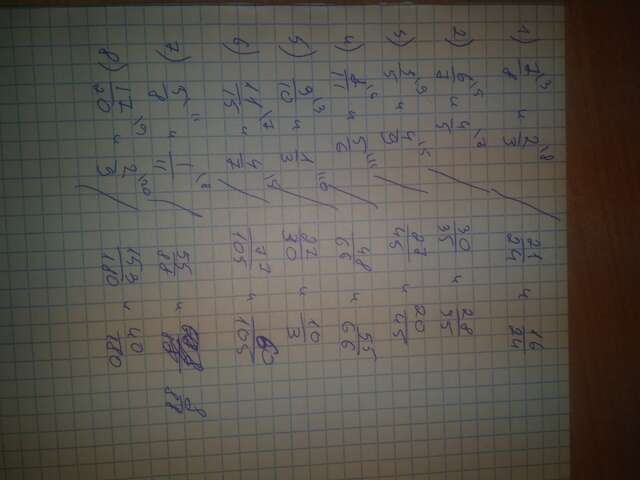 1) 7/8 \3 и 2/3 \8 / 21/24 и 16/24
2) 6/7 \5 и 4/5 \7 / 30/35 и 28/35
3) 3/5 \9 и 4/9 \5 / 27/45 и 20/45
4) 8/11 \6 и 5/6 \11 / 48/66 и 55/66
5) 9/10 \3 и 1/3 \10 / 27/30 и 10/3
6) 11/15 \7 и 4/7 \15 / 77/105 и 60/105
7) 5/8 \11 и 1/11 \8 / 55/88 и 8/88
8) 17/20 \9 и 2/9 \20 / 153/180 и 40/180